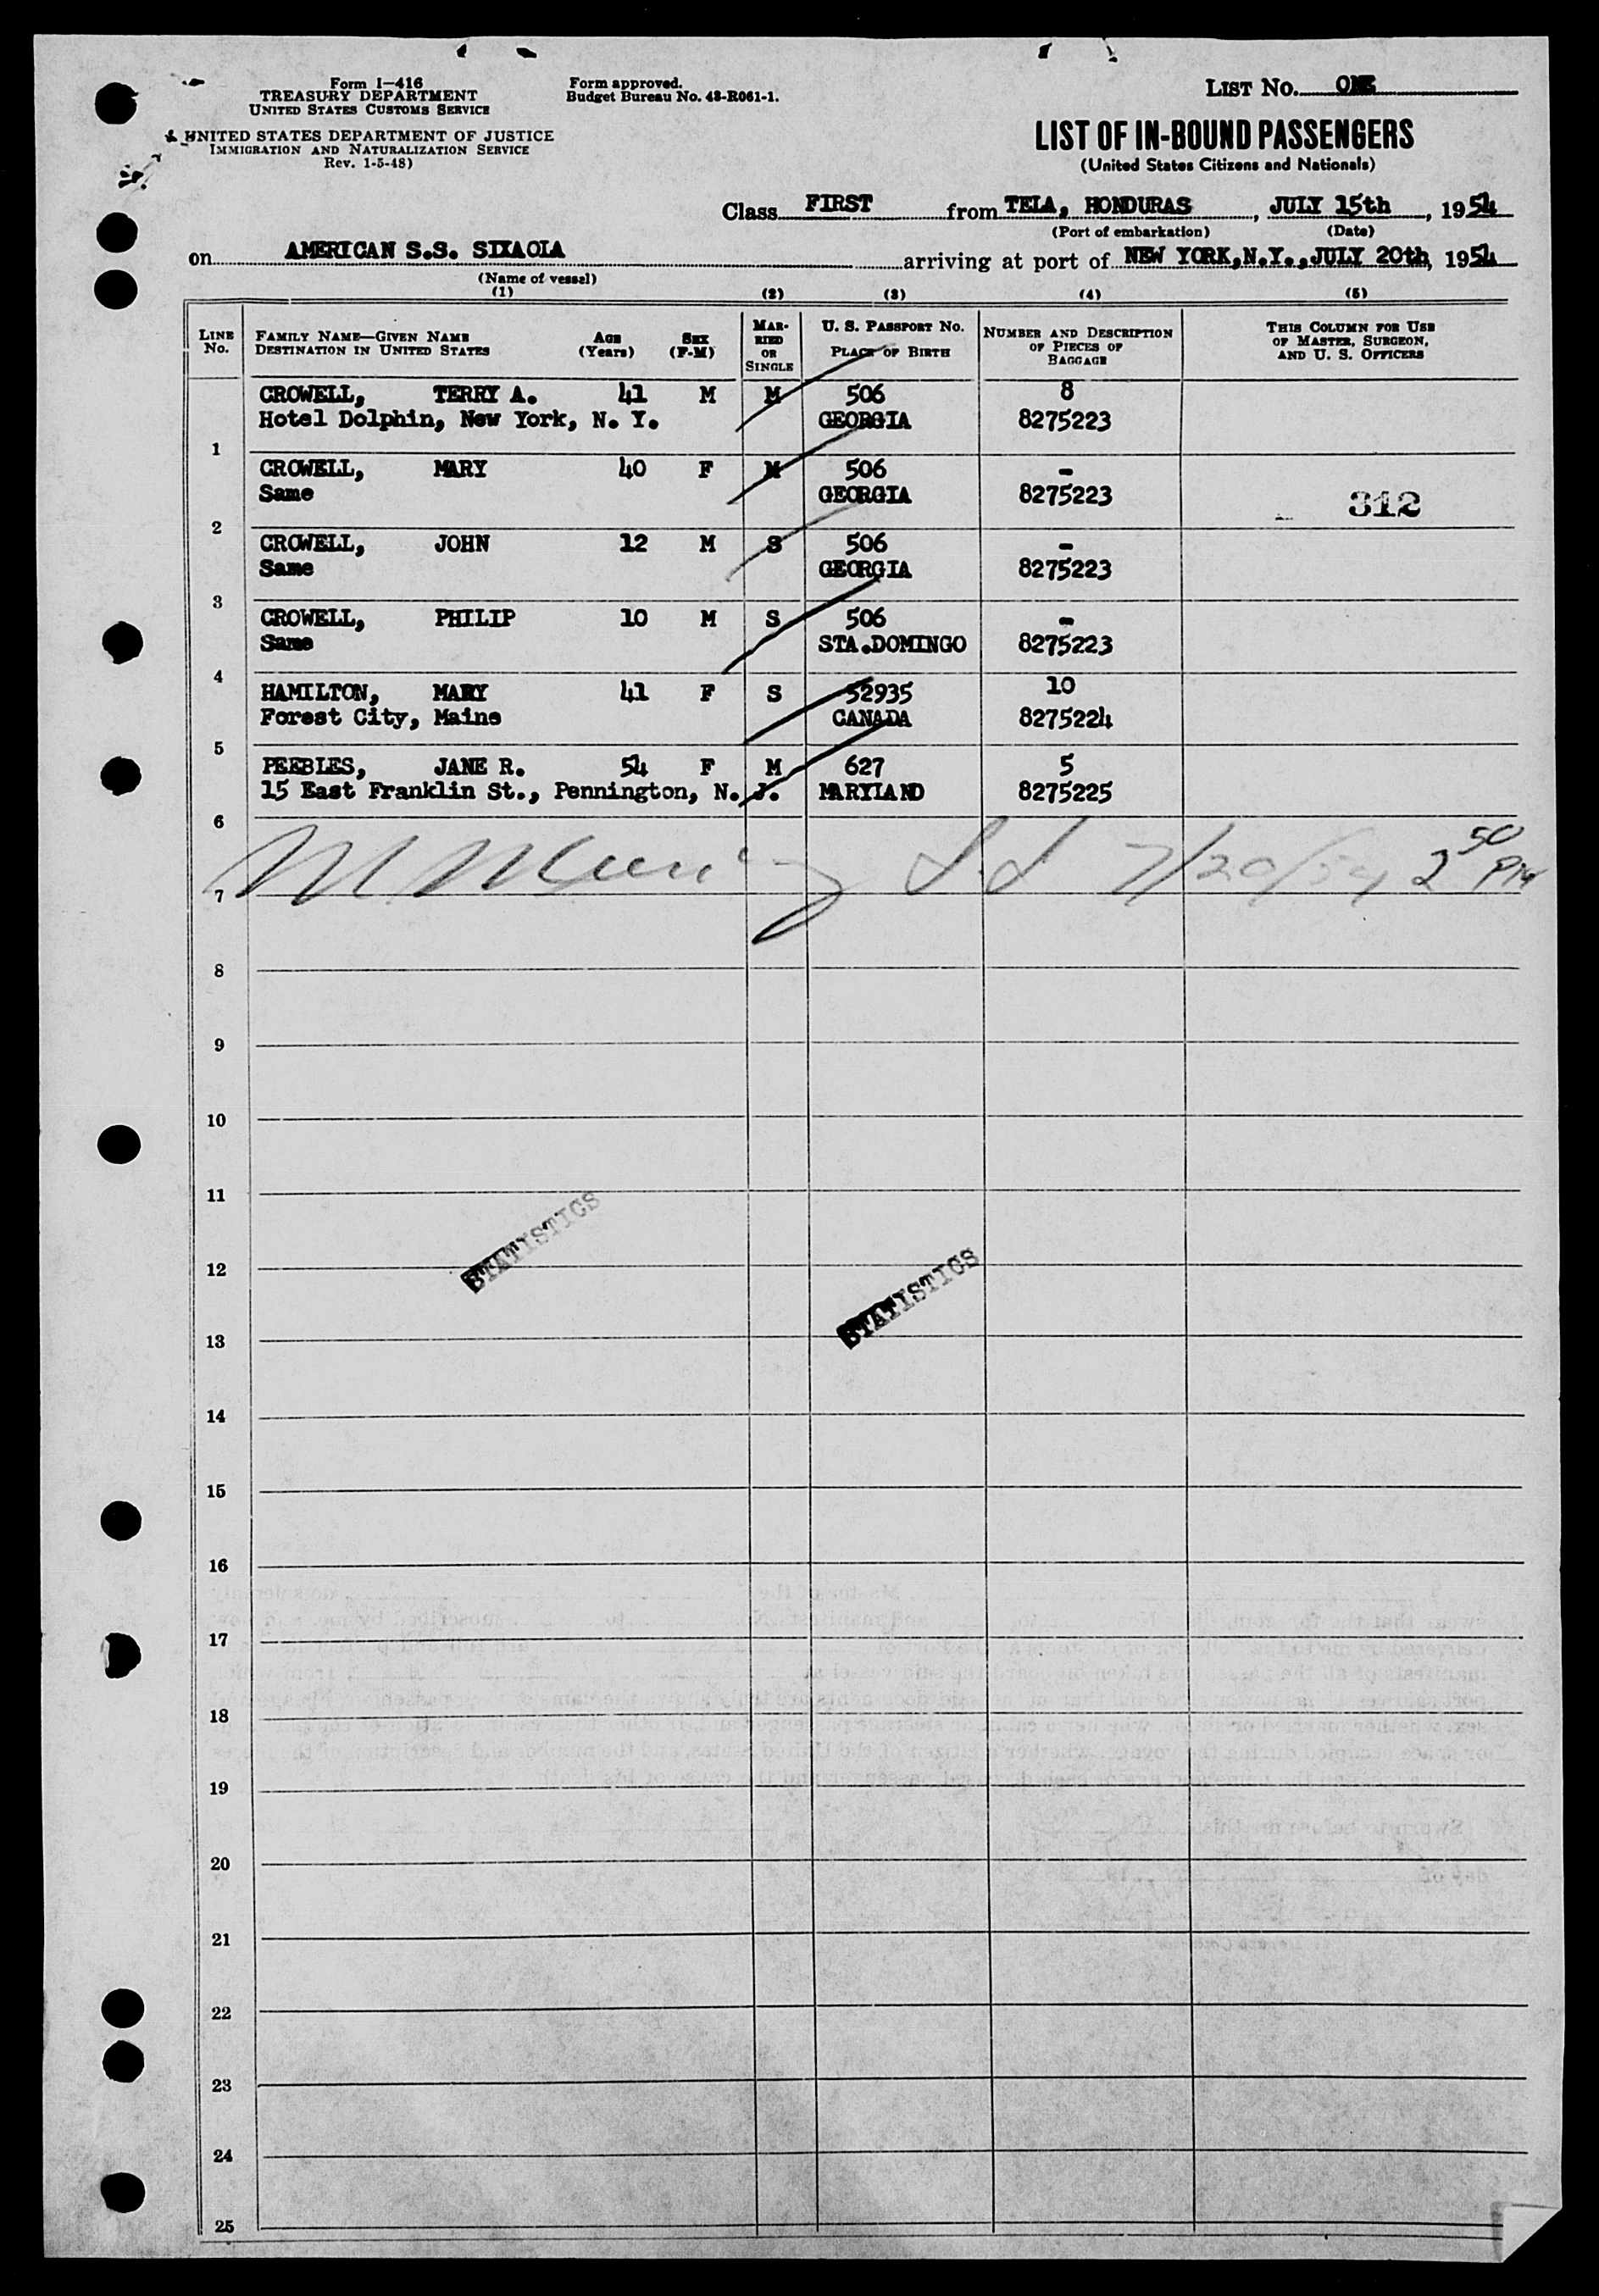 Form I-416
TREASURY DEPARTMENT
UNITED STATES CUSTOMS SERVICE
UNITED STATES DEPARTMENT OF JUSTICE
IMMIGRATION AND NATURALIZATION SERVICE
Rev. 1-5-48)
Form approved.
Budget Bureau No. 43-R061-1.
LIST No. ONE
LIST OF IN-BOUND PASSENGERS
(United States Citizens and Nationals)
Class FIRST from TELA, HONDURAS, JULY 15th, 1954
(Port of embarkation) (Date)
on AMERICAN S.S. SIXAOLA arriving at port of NEW YORK, N.Y., JULY 20th, 1954
(Name of vessel)
(1) (2) (3) (4) (5)
LINE No. FAMILY NAME—GIVEN NAME DESTINATION IN UNITED STATES AGE (Years) SEX (F-M) MARRIED OR SINGLE U. S. PASSPORT NO. PLACE OF BIRTH NUMBER AND DESCRIPTION OF PIECES OF BAGGAGE THIS COLUMN FOR USE OF MASTER, SURGEON, AND U. S. OFFICERS
CROWELL, TERRY A. 41 M M 506 8
Hotel Dolphin, New York, N. Y. GEORGIA 8275223
1
CROWELL, MARY 40 F M 506 -
Same GEORGIA 8275223 312
2
CROWELL, JOHN 12 M S 506 -
Same GEORGIA 8275223
3
CROWELL, PHILIP 10 M S 506 -
Same STA.DOMINGO 8275223
4
HAMILTON, MARY 41 F S 52935 10
Forest City, Maine CANADA 8275224
5
PEEBLES, JANE R. 54 F M 627 5
15 East Franklin St., Pennington, N. J. MARYLAND 8275225
6
7/20/54 2 50 PM
7
8
9
10
11
STATISTICS
12
STATISTICS
13
14
15
16
17
18
19
20
21
22
23
24
25